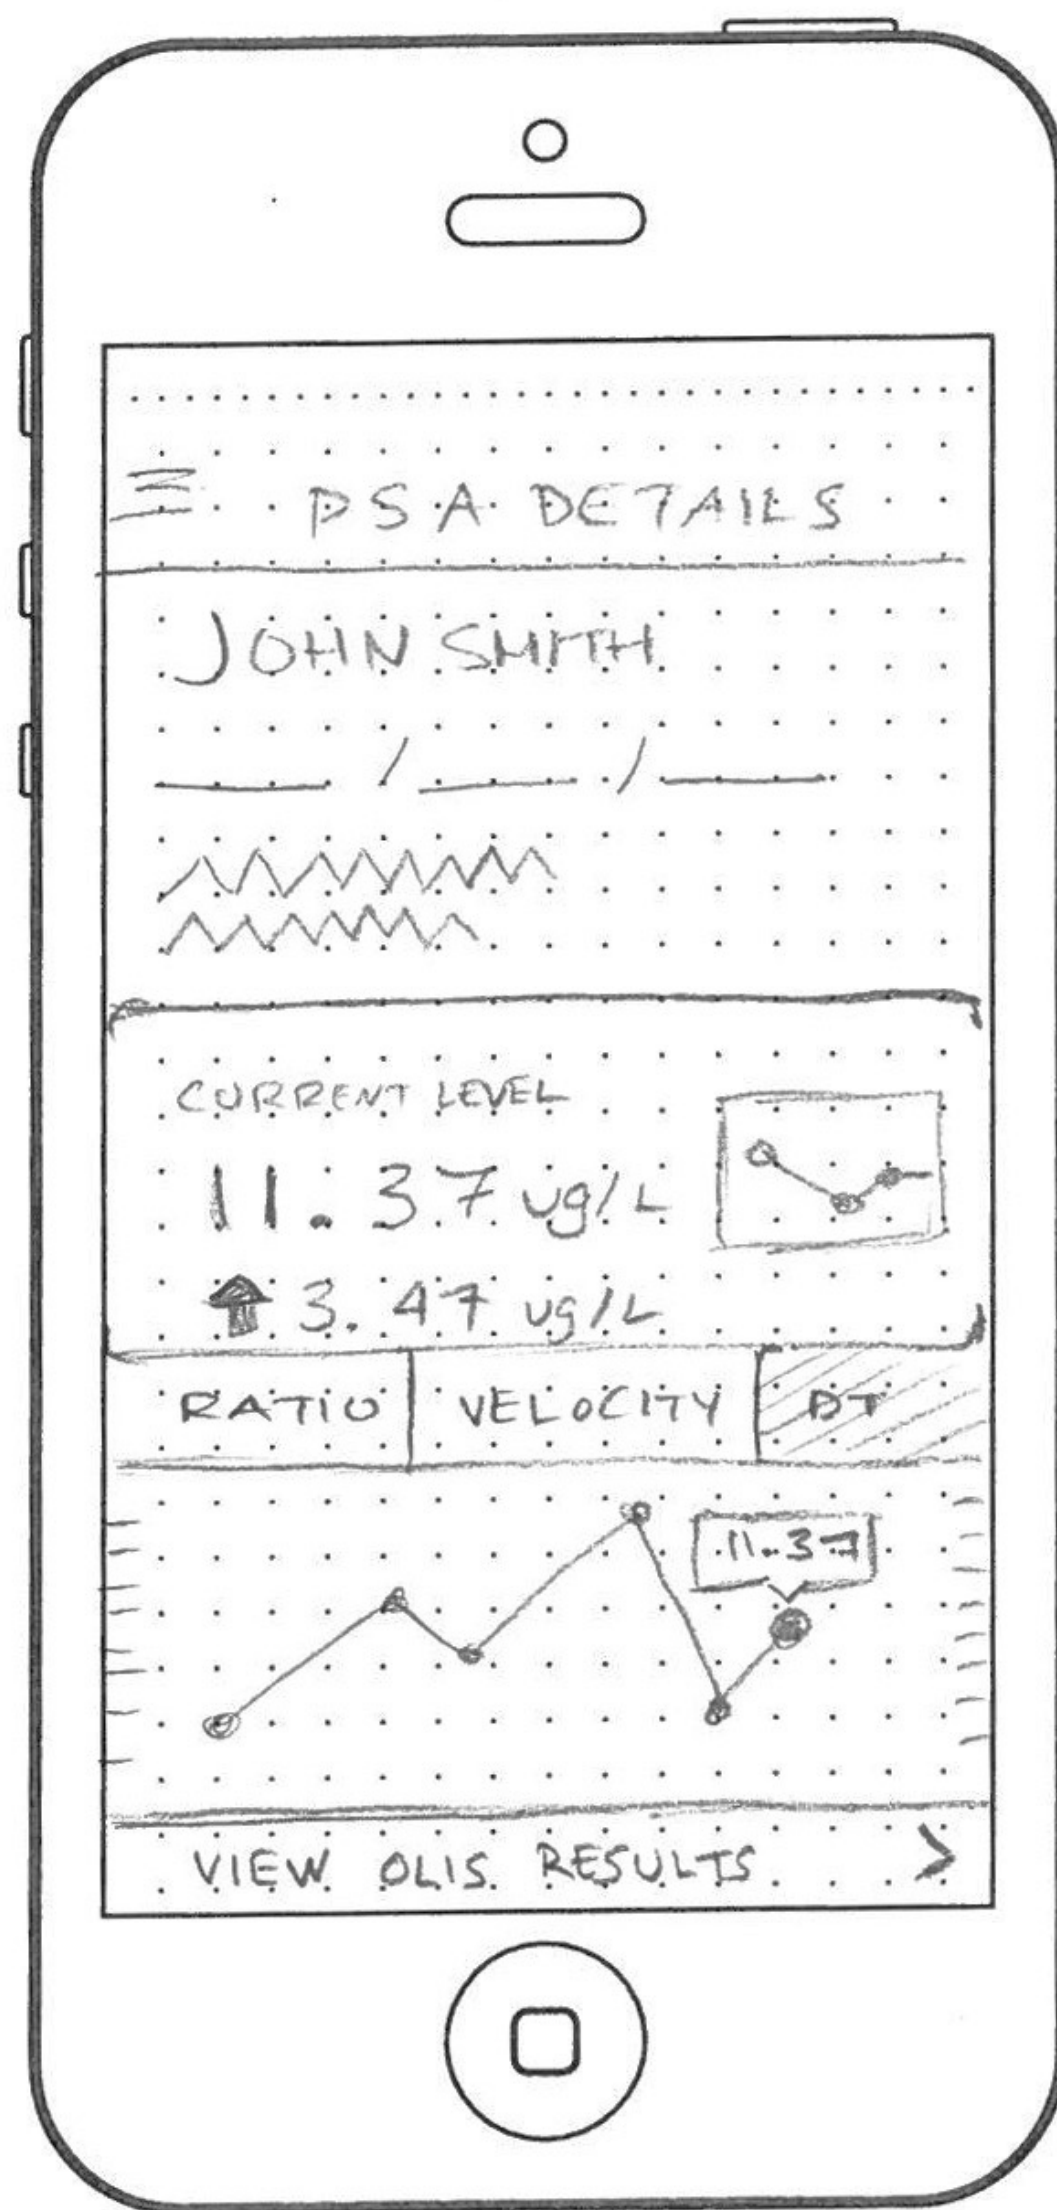 PSA DETAILS
JOHN SMITH
/ /
CURRENT LEVEL
11.37 ug/L
3.47 ug/L
RATIO VELOCITY DT
11.37
VIEW OLIS RESULTS >